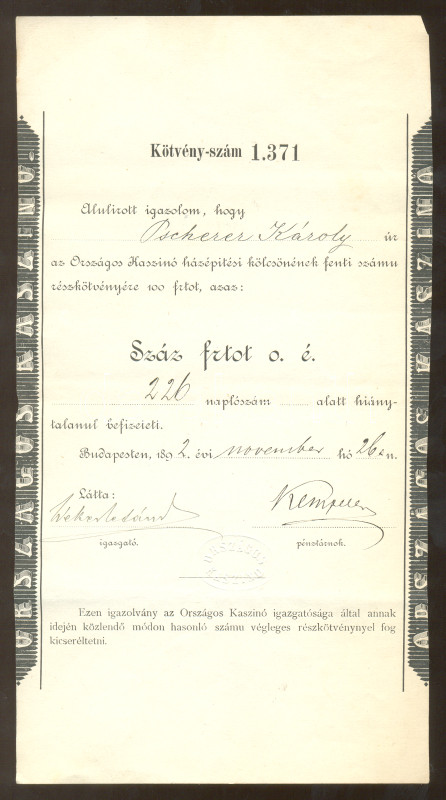 Kötvény-szám 1.371
Alulirott igazolom, hogy
Pscherer Károly úr
az Országos Kaszinó házépitési kölcsönének fenti számu
részkötvényére 100 frtot, azaz:
Száz frtot o. é.
226 naplószám alatt hiány-
talanul befizeteti.
Budapesten, 1892. évi november hó 26-n.
Látta:
igazgató. pénztárnok.
Ezen igazolvány az Országos Kaszinó igazgatósága által annak
idején közlendő módon hasonló számu végleges részkötvénynyel fog
kicseréltetni.
ORSZÁGOS KASZINÓ.
ORSZÁGOS KASZINÓ.